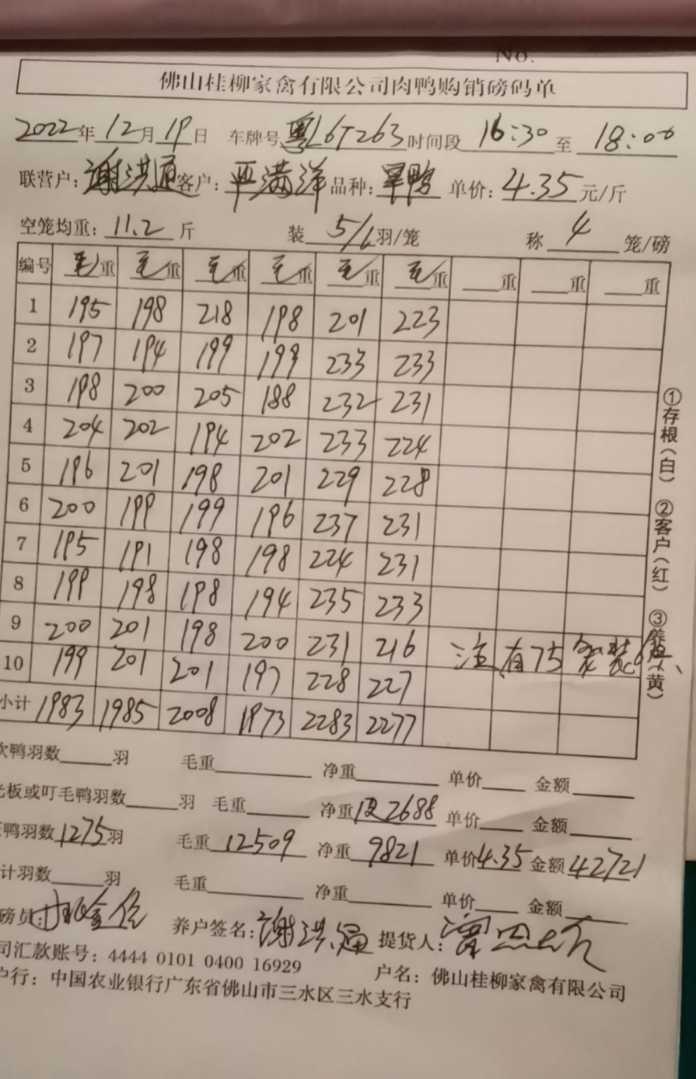 No.
佛山桂柳家禽有限公司肉鸭购销磅码单
2022年12月19日 车牌号粤L6T263时间段16:30至18:00
联营户:谢洪通客户:严满洋品种:旱鸭 单价:4.35元/斤
空笼均重:11.2斤 装5/6羽/笼 称4笼/磅
编号 毛重 毛重 毛重 毛重 毛重 毛重 重 重 重
1 195 198 218 198 201 223
2 197 194 199 199 233 233
3 198 200 205 188 232 231
4 204 202 194 202 233 224
5 196 201 198 201 229 228
6 200 199 199 196 237 231
7 195 191 198 198 224 231
8 199 198 198 194 235 233
9 200 201 198 200 231 216 注,有75
10 199 201 201 197 228 227
小计 1983 1985 2008 1973 2283 2277
①存根(白) ②客户(红) ③养(黄)
次鸭羽数 羽 毛重 净重 单价 金额
光板或叮毛鸭羽数 羽 毛重 净重皮2688 单价 金额
鸭羽数1275羽 毛重12509 净重9821 单价4.35 金额42721
计羽数 羽 毛重 净重 单价 金额
磅员: 养户签名:谢洪通 提货人:
司汇款账号:4444 0101 0400 16929 户名:佛山桂柳家禽有限公司
户行:中国农业银行广东省佛山市三水区三水支行